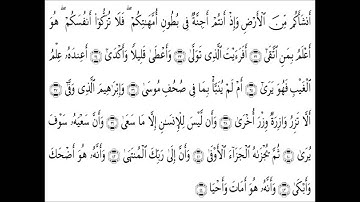 أَنشَأَكُم مِّنَ ٱلْأَرْضِ وَإِذْ أَنتُمْ أَجِنَّةٌ فِى بُطُونِ أُمَّهَٰتِكُمْ ۖ فَلَا تُزَكُّوٓا۟ أَنفُسَكُمْ ۖ هُوَ
أَعْلَمُ بِمَنِ ٱتَّقَىٰٓ ۝ أَفَرَءَيْتَ ٱلَّذِى تَوَلَّىٰ ۝ وَأَعْطَىٰ قَلِيلًا وَأَكْدَىٰٓ ۝ أَعِندَهُۥ عِلْمُ
ٱلْغَيْبِ فَهُوَ يَرَىٰٓ ۝ أَمْ لَمْ يُنَبَّأْ بِمَا فِى صُحُفِ مُوسَىٰ ۝ وَإِبْرَٰهِيمَ ٱلَّذِى وَفَّىٰٓ ۝
أَلَّا تَزِرُ وَازِرَةٌ وِزْرَ أُخْرَىٰ ۝ وَأَن لَّيْسَ لِلْإِنسَٰنِ إِلَّا مَا سَعَىٰ ۝ وَأَنَّ سَعْيَهُۥ سَوْفَ
يُرَىٰ ۝ ثُمَّ يُجْزَىٰهُ ٱلْجَزَآءَ ٱلْأَوْفَىٰ ۝ وَأَنَّ إِلَىٰ رَبِّكَ ٱلْمُنتَهَىٰ ۝ وَأَنَّهُۥ هُوَ أَضْحَكَ
وَأَبْكَىٰ ۝ وَأَنَّهُۥ هُوَ أَمَاتَ وَأَحْيَا ۝